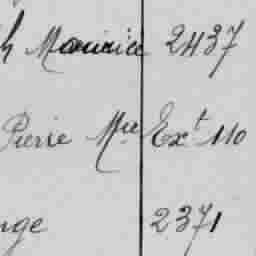 h Maurice 2437
Pierre Mce Ext 110
nge 2371